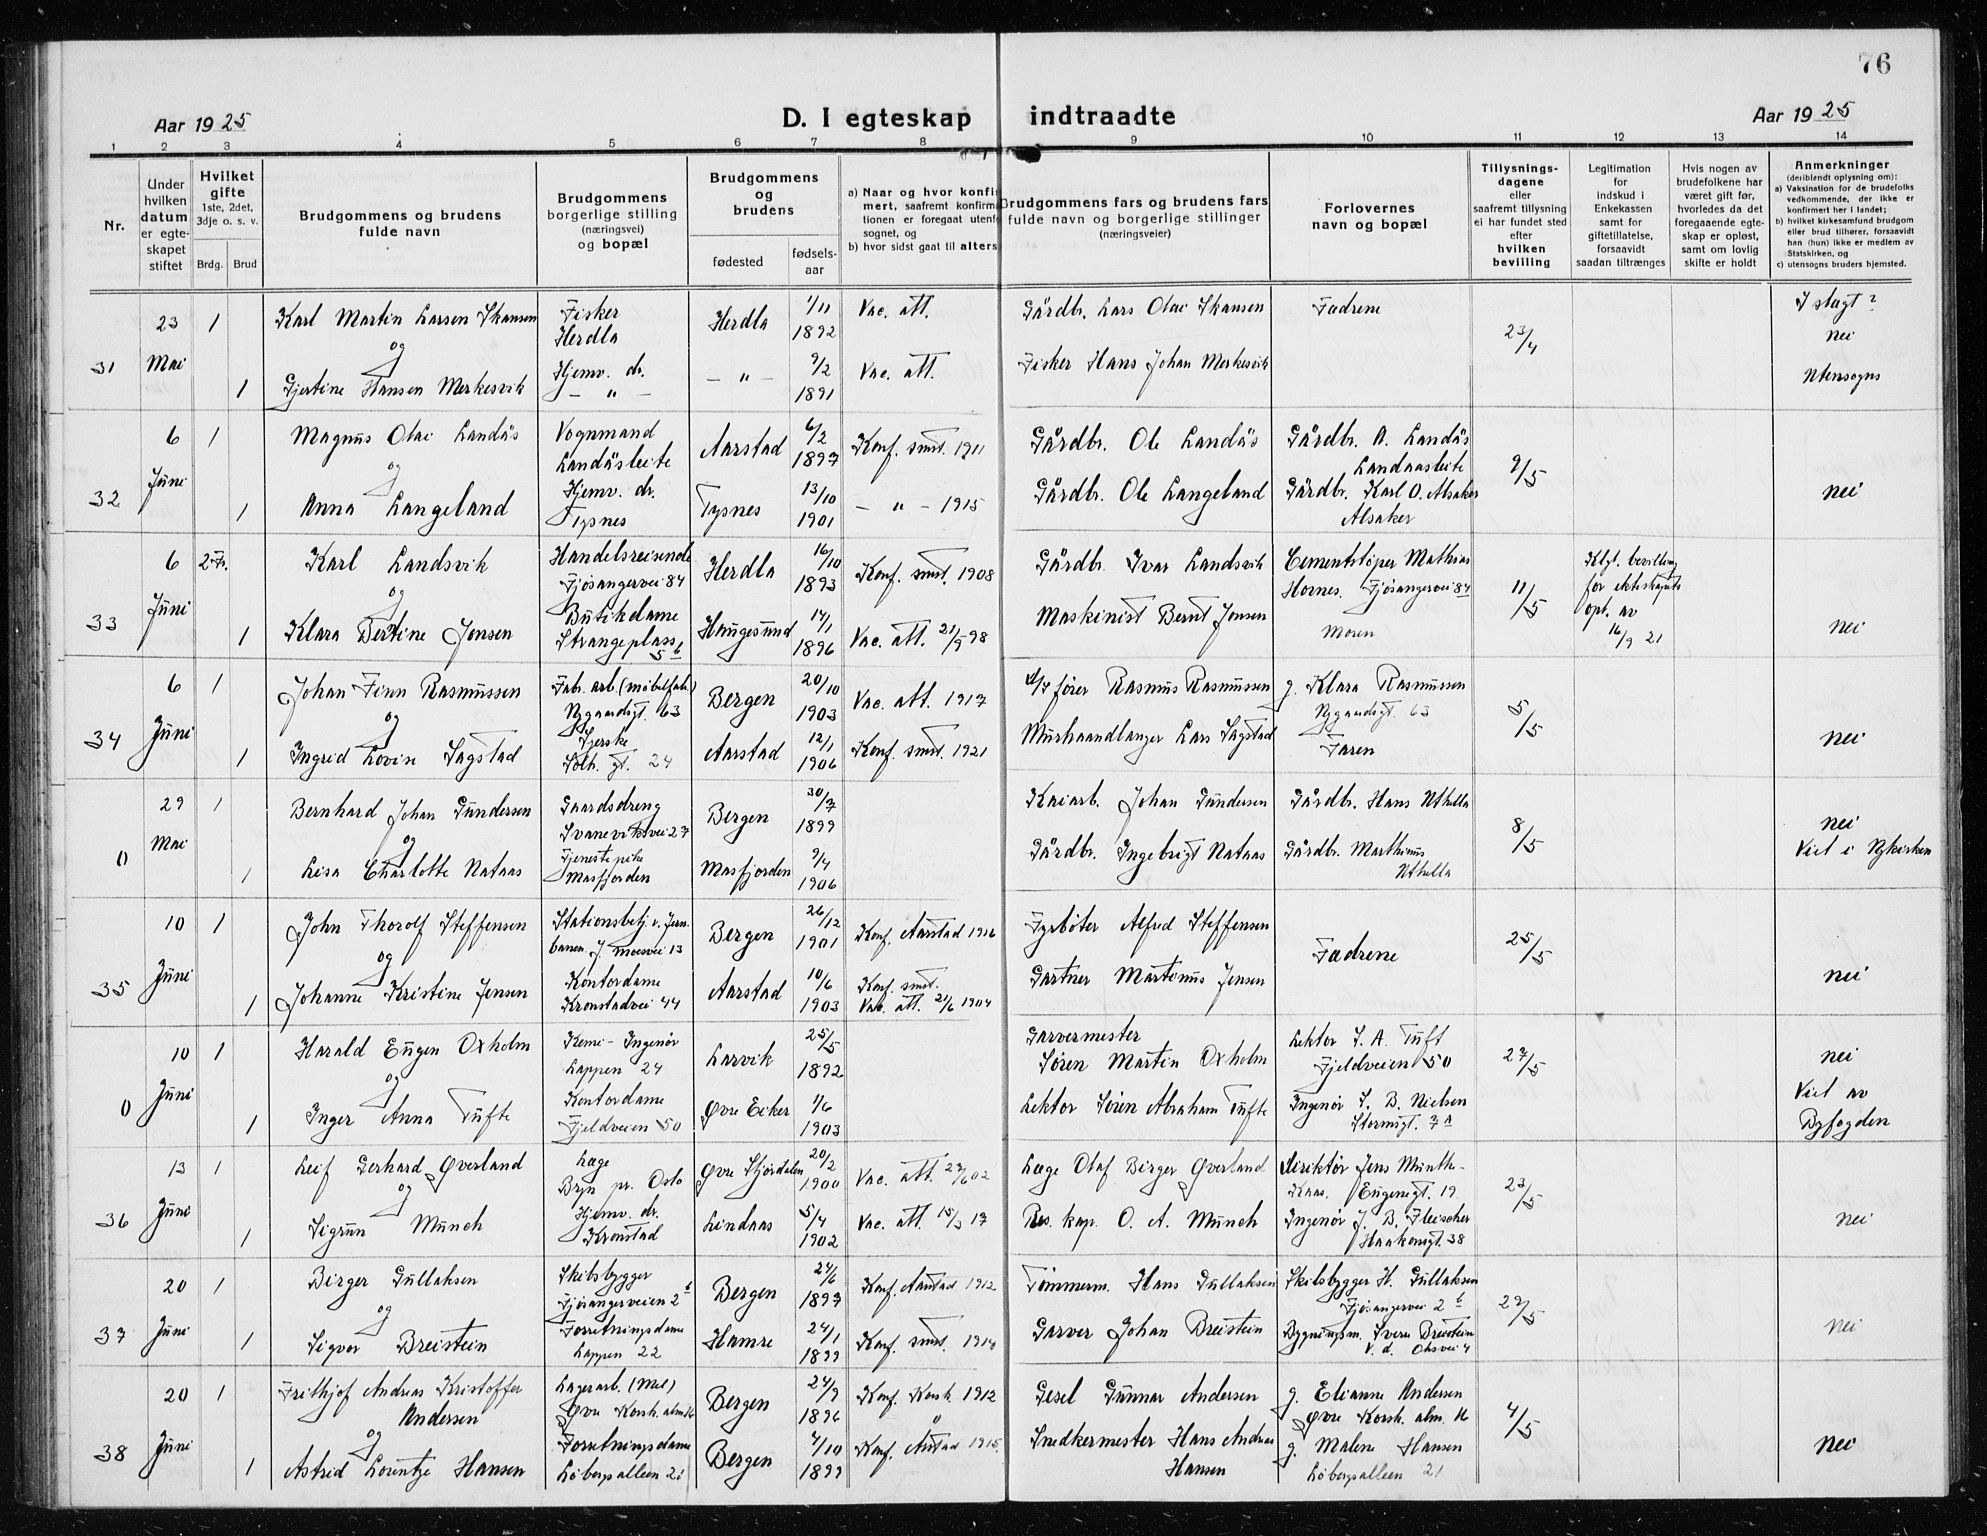 76
Aar 1925
D. I egteskap indtraadte
Aar 1925
1 2 3 4 5 6 7 8 9 10 11 12 13 14
Nr.
Under hvilken datum er egte-skapet stiftet
Hvilket gifte 1ste, 2det, 3dje o. s. v.
Brdg. Brud
Brudgommens og brudens fulde navn
Brudgommens borgerlige stilling (næringsvei) og bopæl
Brudgommens og brudens
fødested
fødsels-aar
a) Naar og hvor konfir
mert, saafremt konfirma
tionen er foregaat utenfo
sognet, og
b) hvor sidst gaat til alters
Brudgommens fars og brudens fars
fulde navn og borgerlige stillinger
(næringsveier)
Forlovernes navn og bopæl
Tillysnings-dagene eller saafremt tillysning ei har fundet sted efter hvilken bevilling
Legitimation for indskud i Enkekassen samt for giftetillatelse, forsaavidt saadan tiltrænges
Hvis nogen av brudefolkene har været gift før, hvorledes da det foregaaende egte-skap er opløst, samt om lovlig skifte er holdt
Anmerkninger
(deriblandt oplysning om):
a) Vaksination for de brudefolks vedkommende, der ikke er konfirmert her i landet;
b) hvilket kirkesamfund brudgom eller brud tilhører, forsaavidt han (hun) ikke er medlem av Statskirken, og
c) utensogns bruders hjemsted.
31 23 Mai 1 Karl Martin Larsen Skansen Fisker Herdla Herdla 1/11 1892 Vac. att. Gårdbr. Lars Olai Skansen Fadrene 23/4 I slagt? nei
og
1 Gjertine Hansen Merkesvik Hjemv. dr. — " — — " — 9/2 1891 Vac. att. Fisker Hans Johan Merkesvik Utensogns
32 6 Juni 1 Magnus Olai Landås Vognmand Landåsleite Aarstad 6/2 1897 Konf. smst. 1911 Gårdbr. Ole Landås Gårdbr. A. Landås Landaasleite 9/5
og
1 Anna Langeland Hjemv. dr. Tysnes Tysnes 13/10 1901 — " — 1915 Gårdbr. Ole Langeland Gårdbr. Karl O. Alsaker Alsaker nei
33 6 Juni 2 F. Karl Landsvik Handelsreisende Fjøsangervei 84 Herdla 16/10 1893 Konf. smst. 1908 Gårdbr. Ivar Landsvik Cementstøper Mathias Hornes. Fjøsangervei 84 11/5 Kglt. bevilling for ekteskapets opl. av 16/9 21
og
1 Klara Bertine Jonsen Butikdame Strangeplass 5 b Haugesund 14/1 1896 Vac. att. 21/9 98 Maskinist Bernt Jonsen Moren nei
34 6 Juni 1 Johan Finn Rasmussen Fab. arb. (møbelfab.) Nygaardsgt. 63 Bergen 20/10 1903 Vac. att. 1917 fører Rasmus Rasmussen g. Klara Rasmussen Nygaardsgt. 63 5/5
og
1 Ingrid Lovise Sagstad Syerske Solh. gt. 24 Aarstad 12/1 1906 Konf. smst. 1921 Murhaandlanger Lars Sagstad Faren nei
0 29 Mai 1 Bernhard Johan Gundersen Gaardsdreng Svaneviksvei 27 Bergen 30/7 1899 Kaiarb. Johan Gundersen Gårdbr. Hans Uthella 8/5 nei
og
1 Lisa Charlotte Nataas Tjenestepike Masfjorden Masfjorden 9/4 1906 Gårdbr. Ingebrigt Nataas Gårdbr. Marthinus Uthella Viet i Nykirken
35 10 Juni 1 John Thorolf Steffensen Stationsbetj. v. Jernbanen. J. Moesvei 13 Bergen 26/12 1901 Konf. Aarstad 1916 Fyrbøter Alfred Steffensen Fadrene 25/5
og
1 Johanne Kristine Jensen Kontordame Kronstadvei 44 Aarstad 10/6 1903 Konf. smst. Vac. att. 21/6 1904 Gartner Martinus Jensen nei
0 10 Juni 1 Harald Eugen Oxholm Kemi-Ingenør Lappen 24 Larvik 25/5 1892 Garvermester Søren Martin Oxholm Lektor S. A. Tuft Fjeldveien 50 27/5 nei
og
1 Inger Anna Tufte Kontordame Fjeldveien 50 Øvre Eiker 1/6 1903 Lektor Søren Abraham Tufte Ingenør S. B. Nielsen Stormsgt. 7 A Viet av Byfogden
36 13 Juni 1 Leif Gerhard Øverland Læge Bryn pr. Oslo Øvre Stjørdalen 20/2 1900 Vac. att. 27/6 02 Læge Olaf Birger Øverland direktør Jens Munthe-Kaas. Eugenigt. 19 23/5
og
1 Sigrun Munch Hjemv. dr. Kronstad Lindaas 5/4 1902 Vac. att. 15/3 17 Res. kap. O. A. Munch Ingenør J. B. Fleischer Haakonsgt. 38 nei
37 20 Juni 1 Birger Gullaksen Skibsbygger Fjøsangerveien 2 b Bergen 24/6 1897 Konf. Aarstad 1912 Tømmerm. Hans Gullaksen Skibsbygger H. Gullaksen Fjøsangervei 2 b 29/5
og
1 Sigvor Breistein Forretningsdame Lappen 22 Hamre 24/1 1899 Konf. smst. 1914 Garver Johan Breistein Bygningsm. Sverre Breistein V. d. Ohsvei 4 nei
38 20 Juni 1 Frithjof Andreas Kristoffer Andersen Lagerarb. (Mel) Øvre Korsk. alm 16 Bergen 24/9 1896 Konf. Korsk. 1912 Gesel Gunnar Andersen g. Elianne Andersen Øvre Korsk. alm. 16 4/5
og
1 Astrid Lorentze Hansen Forretningsdame Løbergsalleen 21 Bergen 4/10 1899 Konf. Årstad 1915. Snedkermester Hans Andreas Hansen g. Malene Hansen Løbergsalleen 21 nei